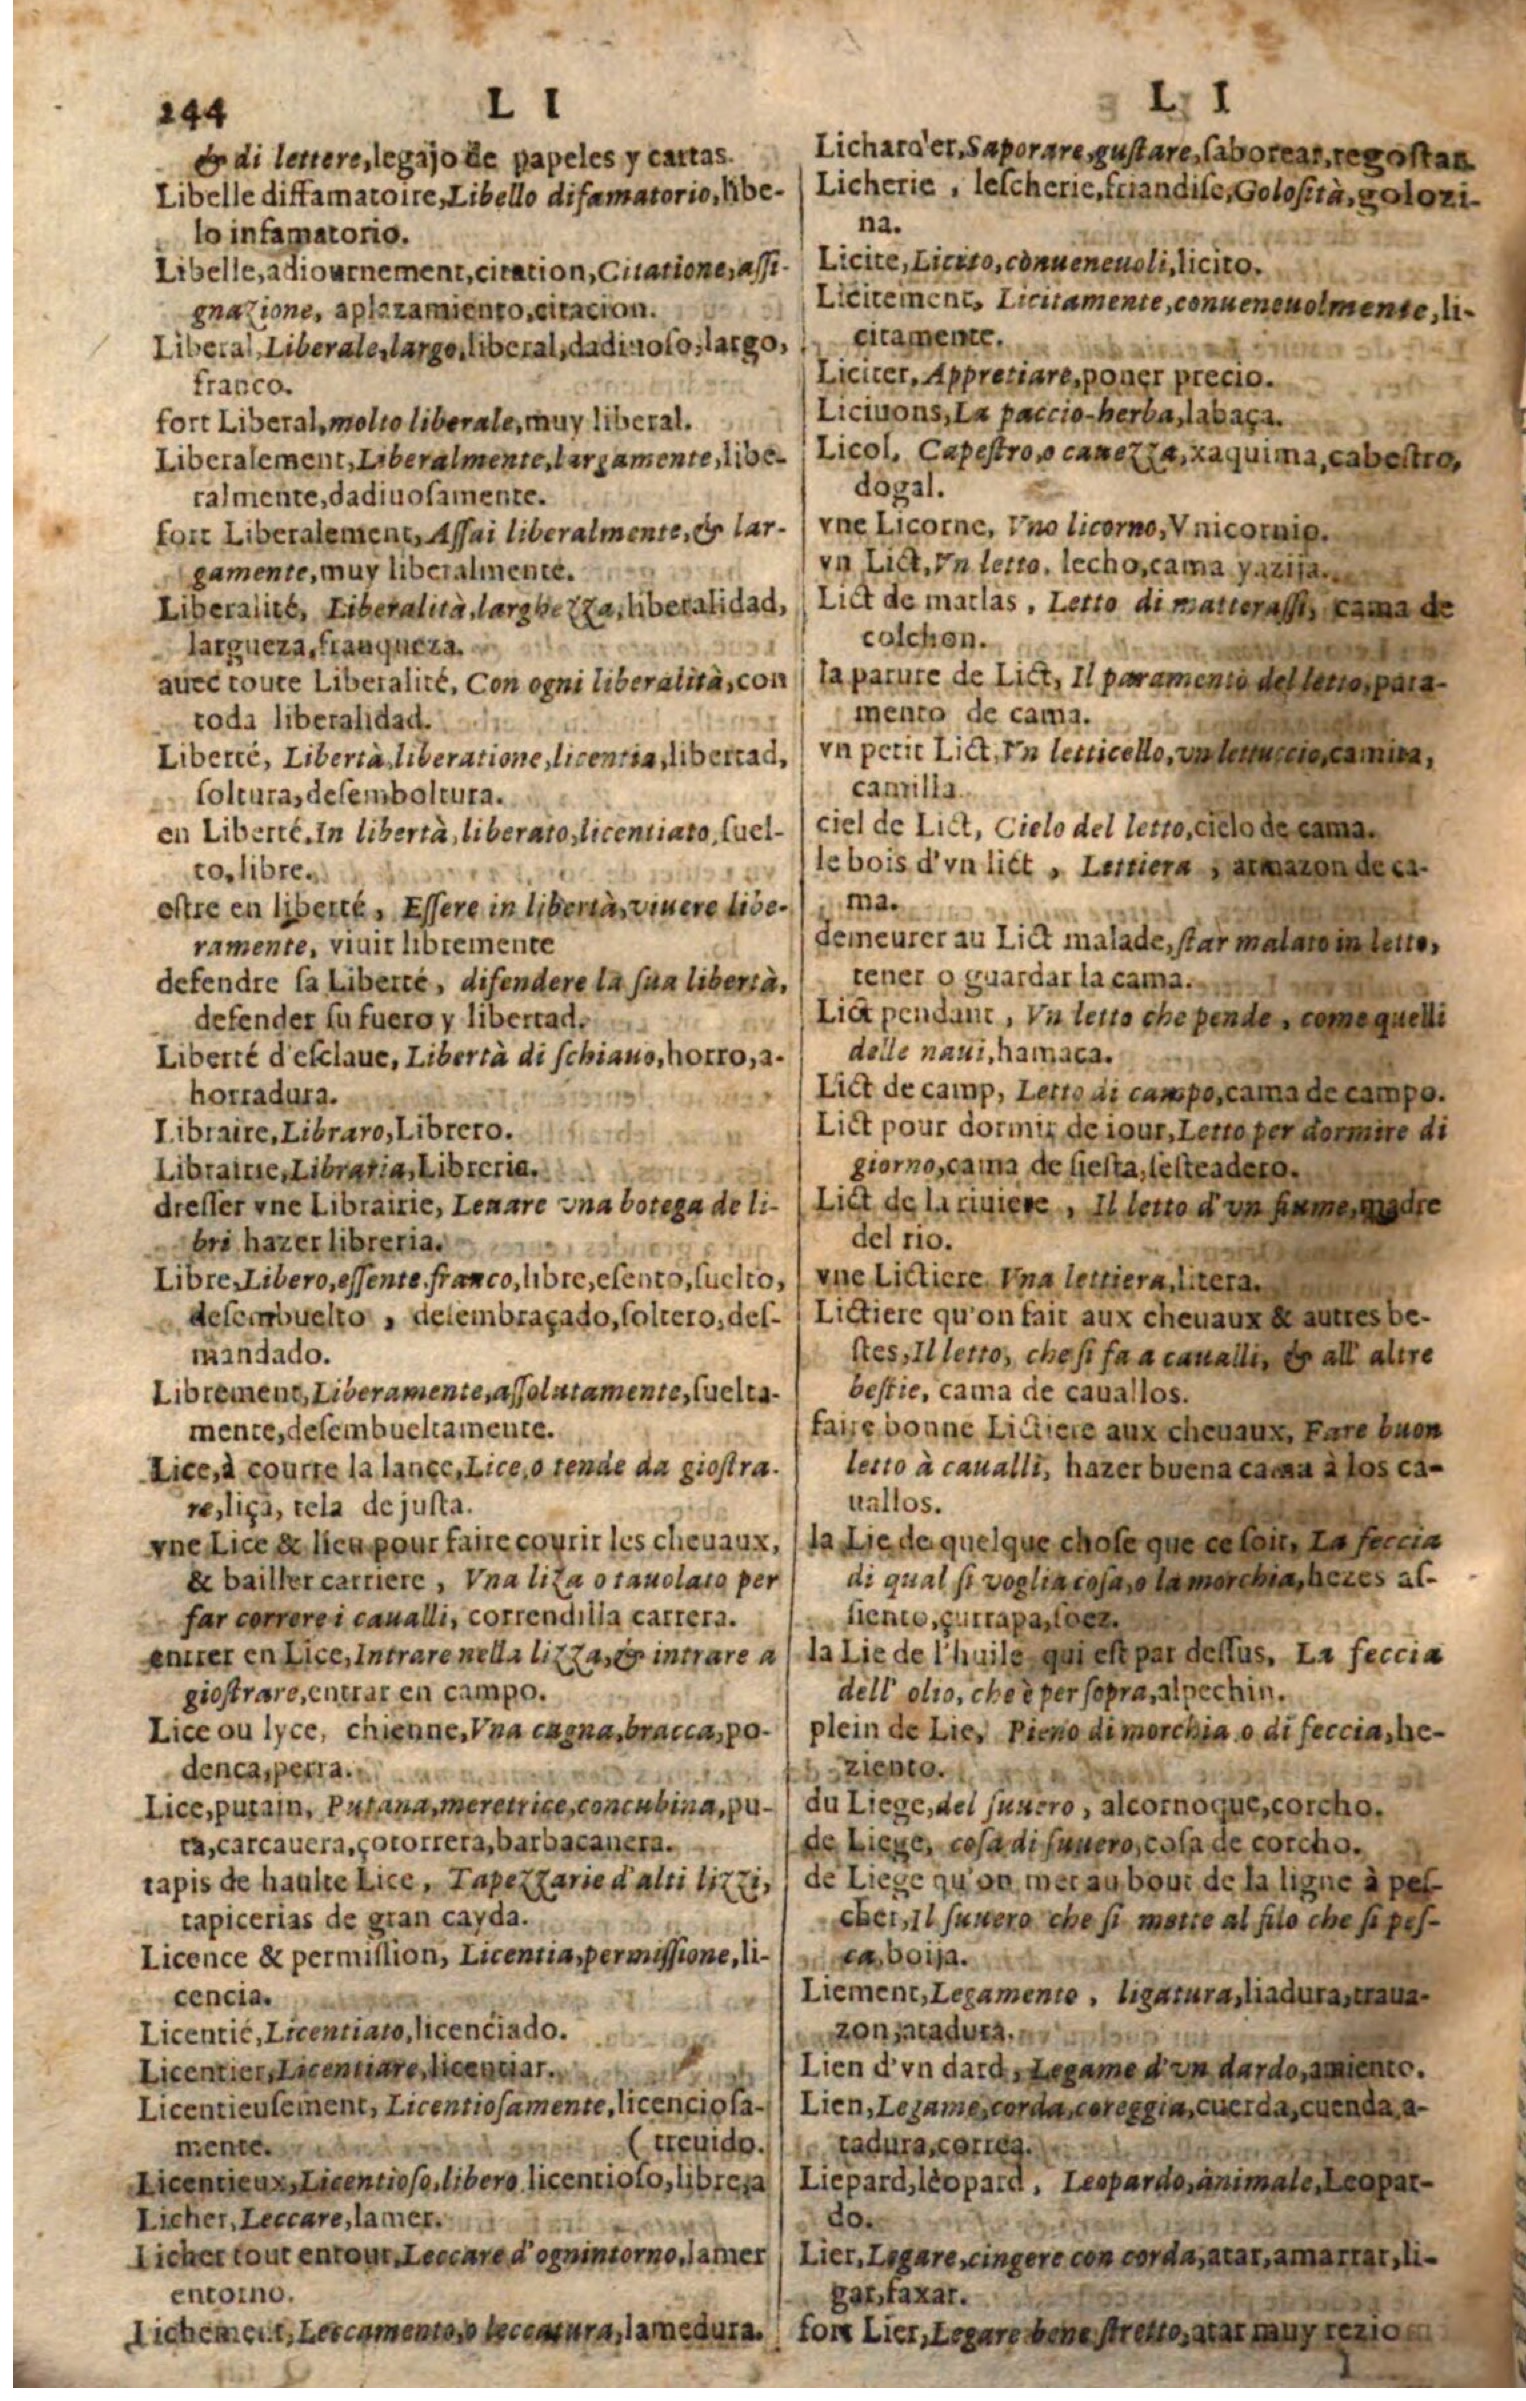 244 L I
& di lettere, legajo de papeles y cartas.
Libelle diffamatoire, Libello difamatorio, libe-
lo infamatorio.
Libelle, adiournement, citation, Citatione, assi-
gnazione, aplazamiento, citacion.
Liberal, Liberale, largo, liberal, dadiuoso, largo,
franco.
fort Liberal, molto liberale, muy liberal.
Liberalement, Liberalmente, largamente, libe-
ralmente, dadiuosamente.
fort Liberalement, Assai liberalmente, & lar-
gamente, muy liberalmente.
Liberalité, Liberalità, larghezza, liberalidad,
largueza, franqueza.
auec toute Liberalité, Con ogni liberalità, con
toda liberalidad.
Liberté, Libertà, liberatione, licentia, libertad,
soltura, desemboltura.
en Liberté, In libertà, liberato, licentiato, suel-
to, libre.
estre en liberté, Essere in libertà, viuere libe-
ramente, viuir libremente
defendre sa Liberté, difendere la sua libertà,
defender su fuero y libertad.
Liberté d'esclaue, Libertà di schiauo, horro, a-
horradura.
Libraire, Libraro, Librero.
Librairie, Libraria, Libreria.
dresser vne Librairie, Leuare vna botega de li-
bri hazer libreria.
Libre, Libero, essente, franco, libre, esento, suelto,
desembuelto, desembraçado, soltero, des-
mandado.
Librement, Liberamente, assolutamente, suelta-
mente, desembueltamente.
Lice, à courre la lance, Lice, o tende da giostra-
re, liça, tela de justa.
vne Lice & lieu pour faire courir les cheuaux,
& bailler carriere, Vna liza o tauolato per
far correre i caualli, correndilla carrera.
entrer en Lice, Intrare nella lizza, & intrare a
giostrare, entrar en campo.
Lice ou lyce, chienne, Vna cagna, bracca, po-
denca, perra.
Lice, putain, Putana, meretrice, concubina, pu-
ta, carcauera, çotorrera, barbacanera.
tapis de haulte Lice, Tapezzarie d'alti lizzi,
tapicerias de gran cayda.
Licence & permission, Licentia, permissione, li-
cencia.
Licentié, Licentiato, licenciado.
Licentier, Licentiare, licenciar.
Licentieusement, Licentiosamente, licenciosa-
mente. (treuido.
Licentieux, Licentioso, libero licentioso, libre, a
Licher, Leccare, lamer.
Licher tout entour, Leccare d'ognintorno, lamer
entorno.
Lichement, Leccamento, o leccatura, lamedura.
L I
Lichard'er, Saporare, gustare, saborear, regostar.
Licherie, lescherie, friandise, Golosità, golozi-
na.
Licite, Licito, conueneuoli, licito.
Licitement, Licitamente, conueneuolmente, li-
citamente.
Liciter, Appretiare, poner precio.
Liciuons, La paccio-herba, labaça.
Licol, Capestro, o cauezza, xaquima, cabestro,
dogal.
vne Licorne, Vno licorno, Vnicornio.
vn Lict, Vn letto, lecho, cama yazija.
Lict de matlas, Letto di matterassi, cama de
colchon.
la parure de Lict, Il paramento del letto, para-
mento de cama.
vn petit Lict, Vn letticello, vn lettuccio, camita,
camilla.
ciel de Lict, Cielo del letto, cielo de cama.
le bois d'vn lict, Lettiera, armazon de ca-
ma.
demeurer au Lict malade, star malato in letto,
tener o guardar la cama.
Lict pendant, Vn letto che pende, come quelli
delle naui, hamaca.
Lict de camp, Letto di campo, cama de campo.
Lict pour dormir de iour, Letto per dormire di
giorno, cama de siesta, sesteadero.
Lict de la riuiere, Il letto d'vn fiume, madre
del rio.
vne Lictiere Vna lettiera, litera.
Lictiere qu'on fait aux cheuaux & autres be-
stes, Il letto, che si fa a caualli, & all' altre
bestie, cama de cauallos.
faire bonne Lictiere aux cheuaux, Fare buon
letto à caualli, hazer buena cama à los ca-
uallos.
la Lie de quelque chose que ce soit, La feccia
di qual si voglia cosa, o la morchia, hezes as-
siento, çurrapa, soez.
la Lie de l'huile qui est par dessus, La feccia
dell' olio, che è per sopra, alpechin.
plein de Lie, Pieno di morchia o di feccia, he-
ziento.
du Liege, del suuero, alcornoque, corcho.
de Liege, cosa di suuero, cosa de corcho.
de Liege qu'on met au bout de la ligne à pes-
cher, Il suuero che si mette al filo che si pes-
ca, boija.
Liement, Legamento, ligatura, liadura, traua-
zon, atadura.
Lien d'vn dard, Legame d'vn dardo, amiento.
Lien, Legame, corda, coreggia, cuerda, cuenda, a-
tadura, correa.
Liepard, lèopard, Leopardo, animale, Leopar-
do.
Lier, Legare, cingere con corda, atar, amarrar, li-
gar, faxar.
fort Lier, Legare bene stretto, atar muy rezio